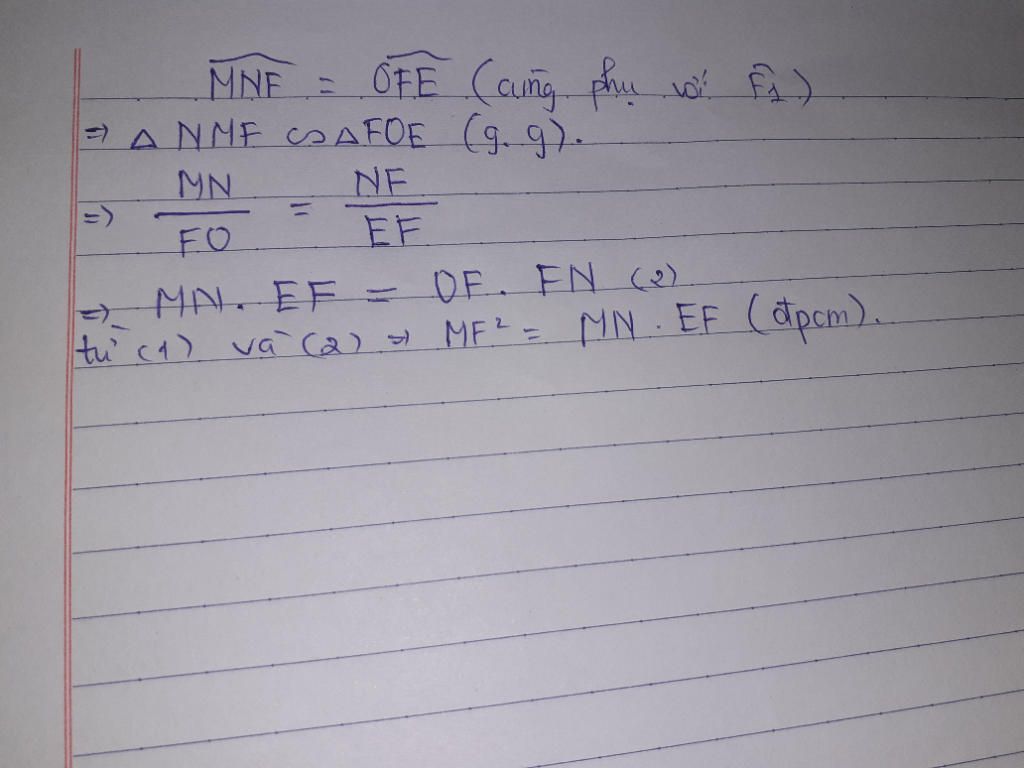 MNF = OFE (cũng phụ với F̂1)
=> △ NMF ∽ △FOE (g.g).
=> MN/FO = NF/EF
=> MN. EF = OF. FN (2)
từ (1) và (2) => MF² = MN . EF (đpcm).